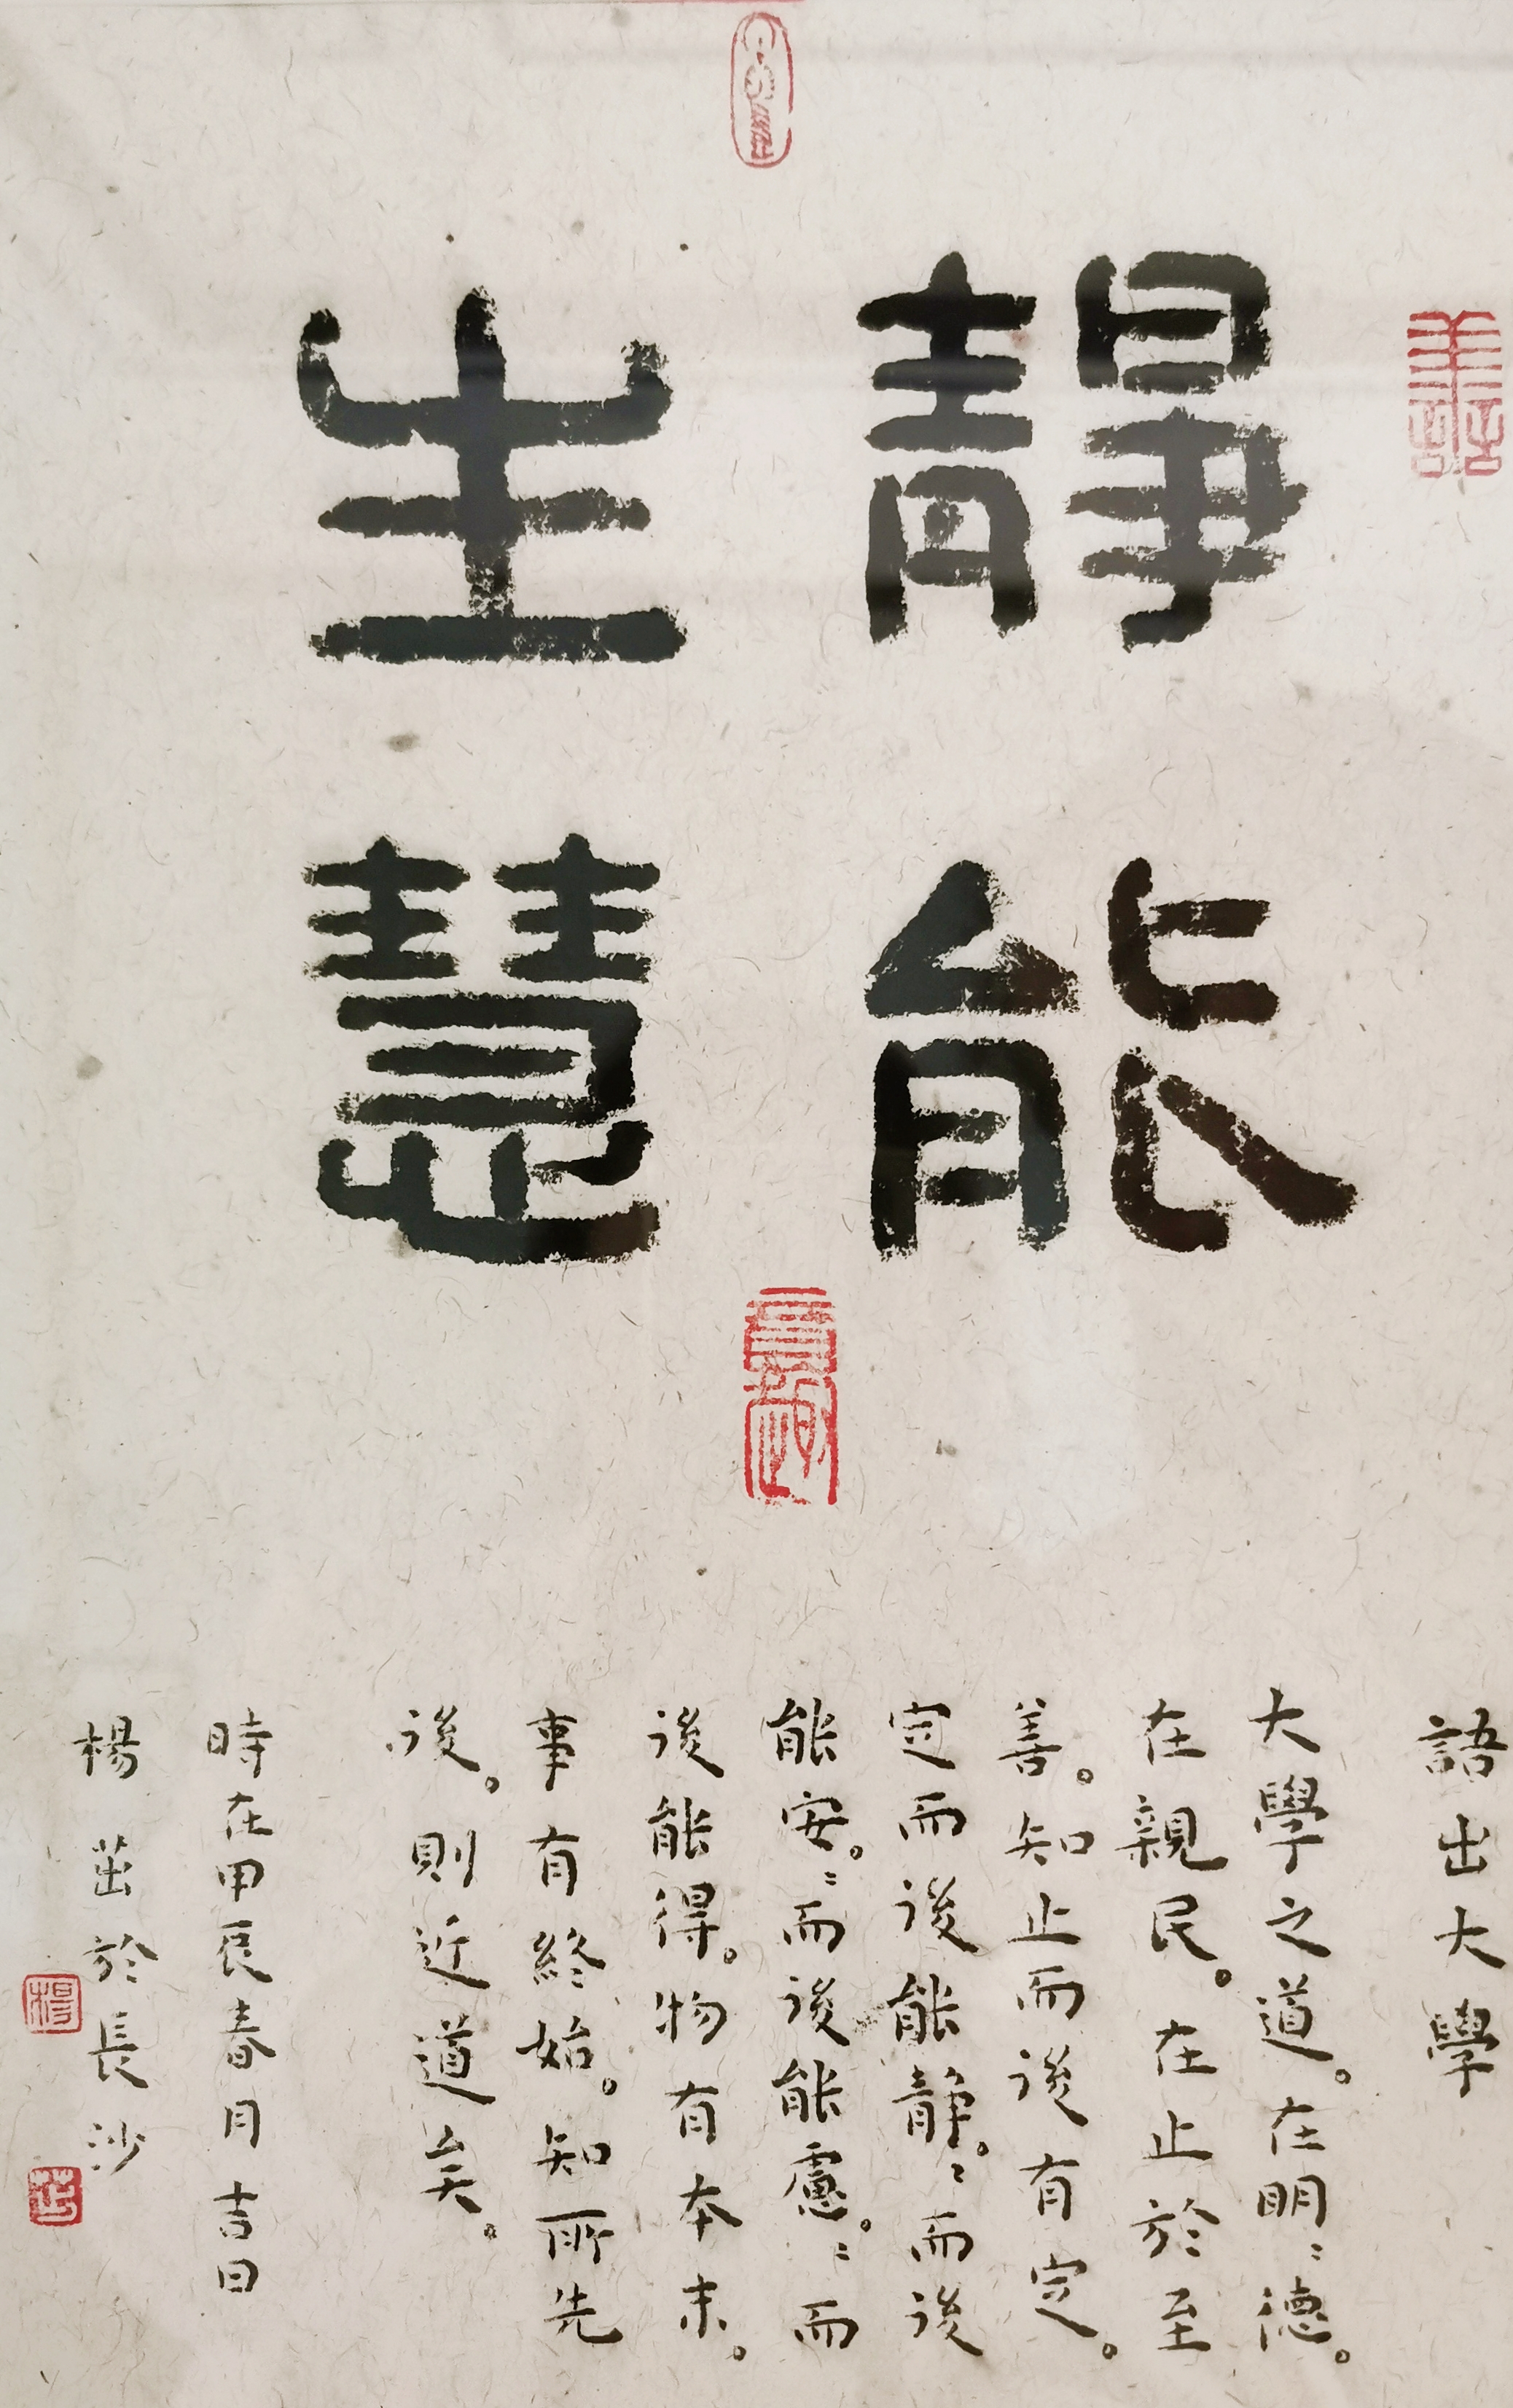 靜能
生慧
語出大學
大學之道。在明〻德。
在親民。在止於至
善。知止而後有定。
定而後能靜。〻而後
能安。〻而後能慮。〻而
後能得。物有本末。
事有終始。知所先
後。則近道矣。
時在甲辰春月吉日
楊茁於長沙
楊